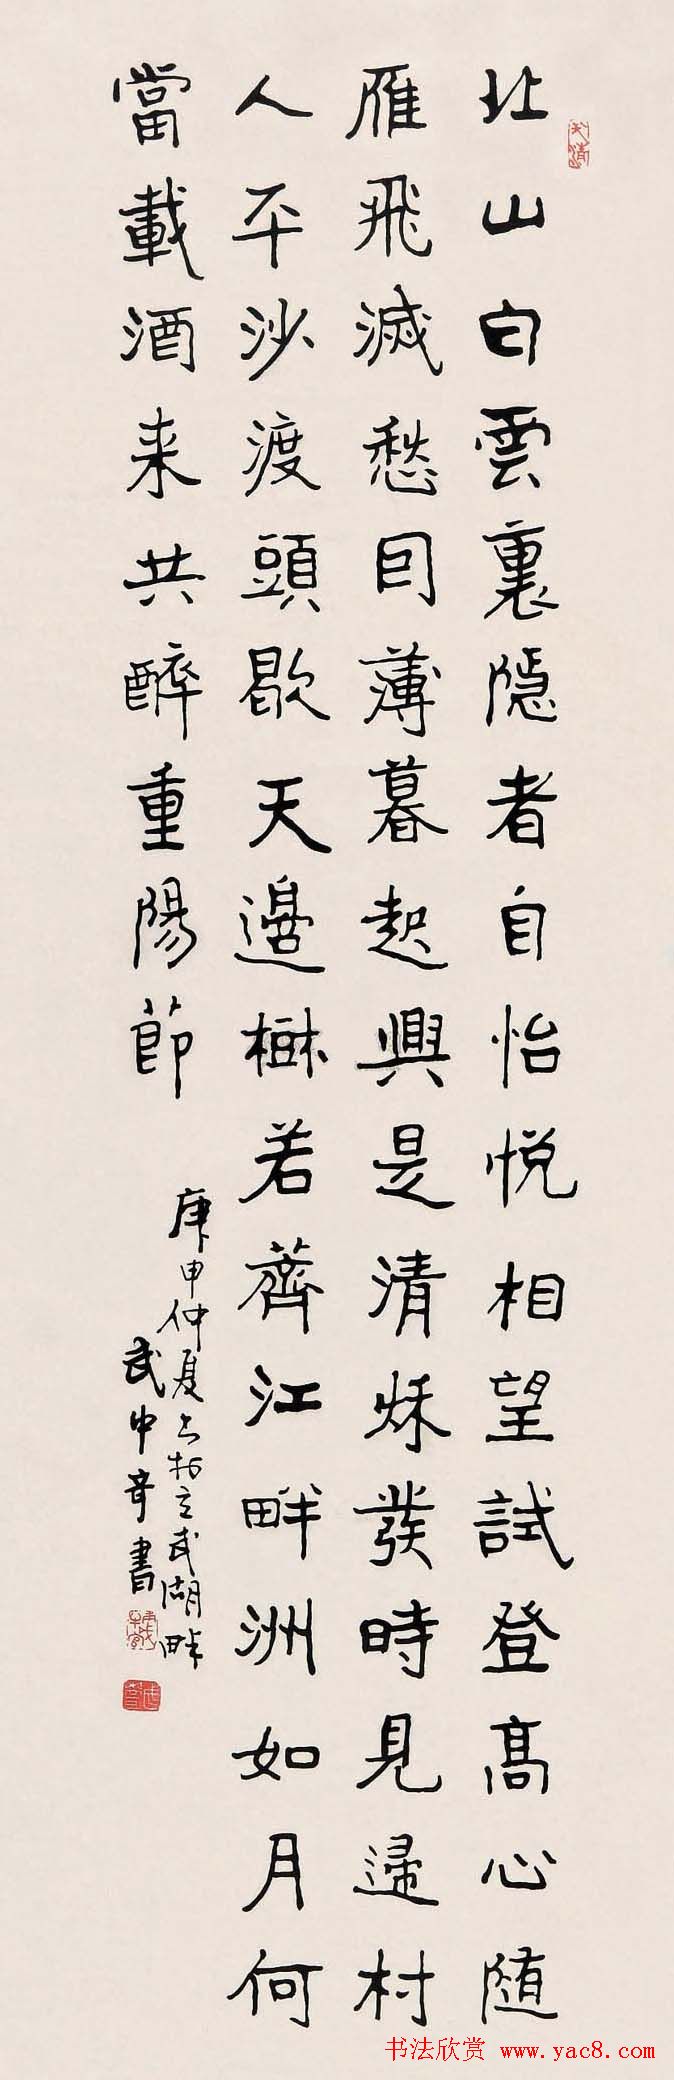 北山白雲裏隱者自怡悅相望試登高心随
雁飛滅愁因薄暮起興是清秋發時見歸村
人平沙渡頭歇天邊樹若薺江畔洲如月何
當載酒来共醉重陽節
庚申仲夏书於玄武湖畔
武中奇書
书法欣赏 www.yac8.com